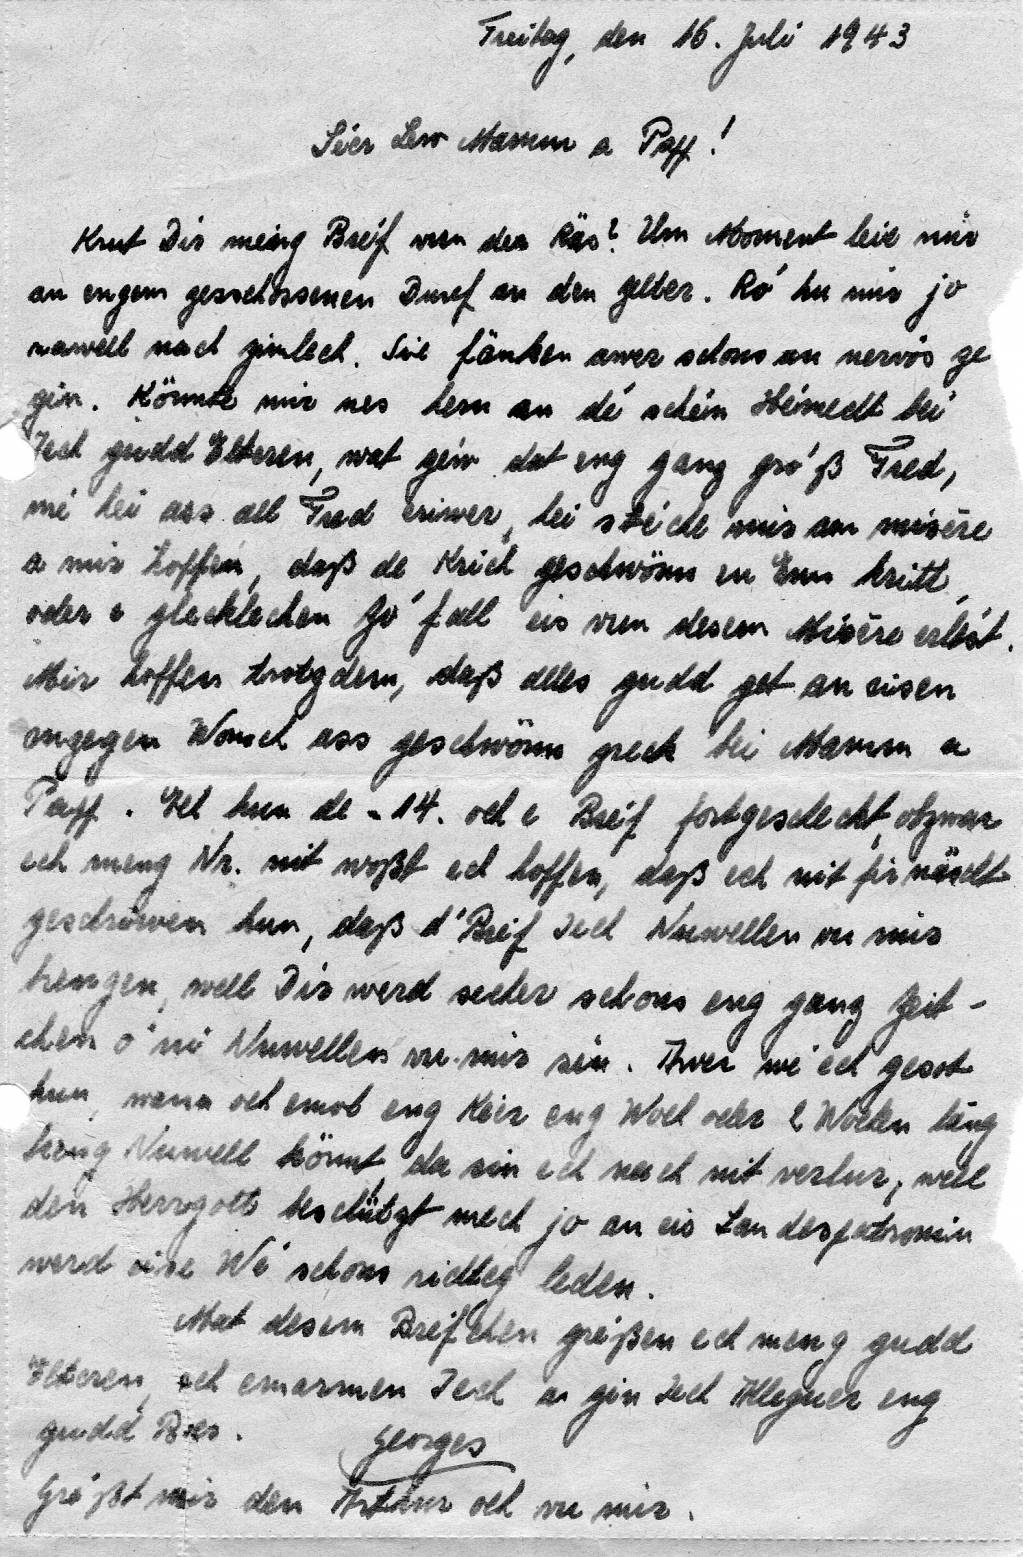 Freitag, den 16. Juli 1943
Léer Lew Mamm a Papp!
Krut Dir meing Breif vun der Räs? Um Moment leie mir
an engem geschossenen Duref an den Zelter. Ro' hu mir jo
nawell nach zimlech. Sie fänken awer schons un nervös ze
gin. Könnte mir nes hem an dé schéin Héimecht bei
Iech gudd Elteren, wat géiw dat eng ganz gro'ß Fred,
mé hei ass all Fred eriwer, hei stéiche mir am misère
a mir hoffen, daß de Krich geschwönn en Enn hritt,
oder e glecklechen Zo'fall eis vun desem Misère erlést.
Mir hoffen trotzdem, daß alles gudd get an eisen
enzegen Wonsch ass geschwönn zreck bei Mamm a
Papp. Ech hun de - 14. och e Breif fortgescheckt, obzwar
ech meng Nr. nit woßt ech hoffen, daß ech nit fir näscht
geschriwen hun, daß d'Breif Iech Nuwellen vu mir
brengen, well Dir werd secher schons eng ganz Zeit-
chen o'ni Nuwellen vu mir sin. Awer wé ech gesot
hun, wann och emol eng Keier eng Woch oder 2 Wochen läng
keng Nuwell kömmt da sin ech nach nit verlur, well
den Herrgott beschützt mech jo an eis Landespatronin
werd eise Wé schons richteg leden.
Mat desem Breifchen gréißen ech meng gudd
Elteren, ech emarmen Iech a gin Iech Alleguer eng
gudd Bees.
Georges
Gréßt mir den Arthur och vu mir.